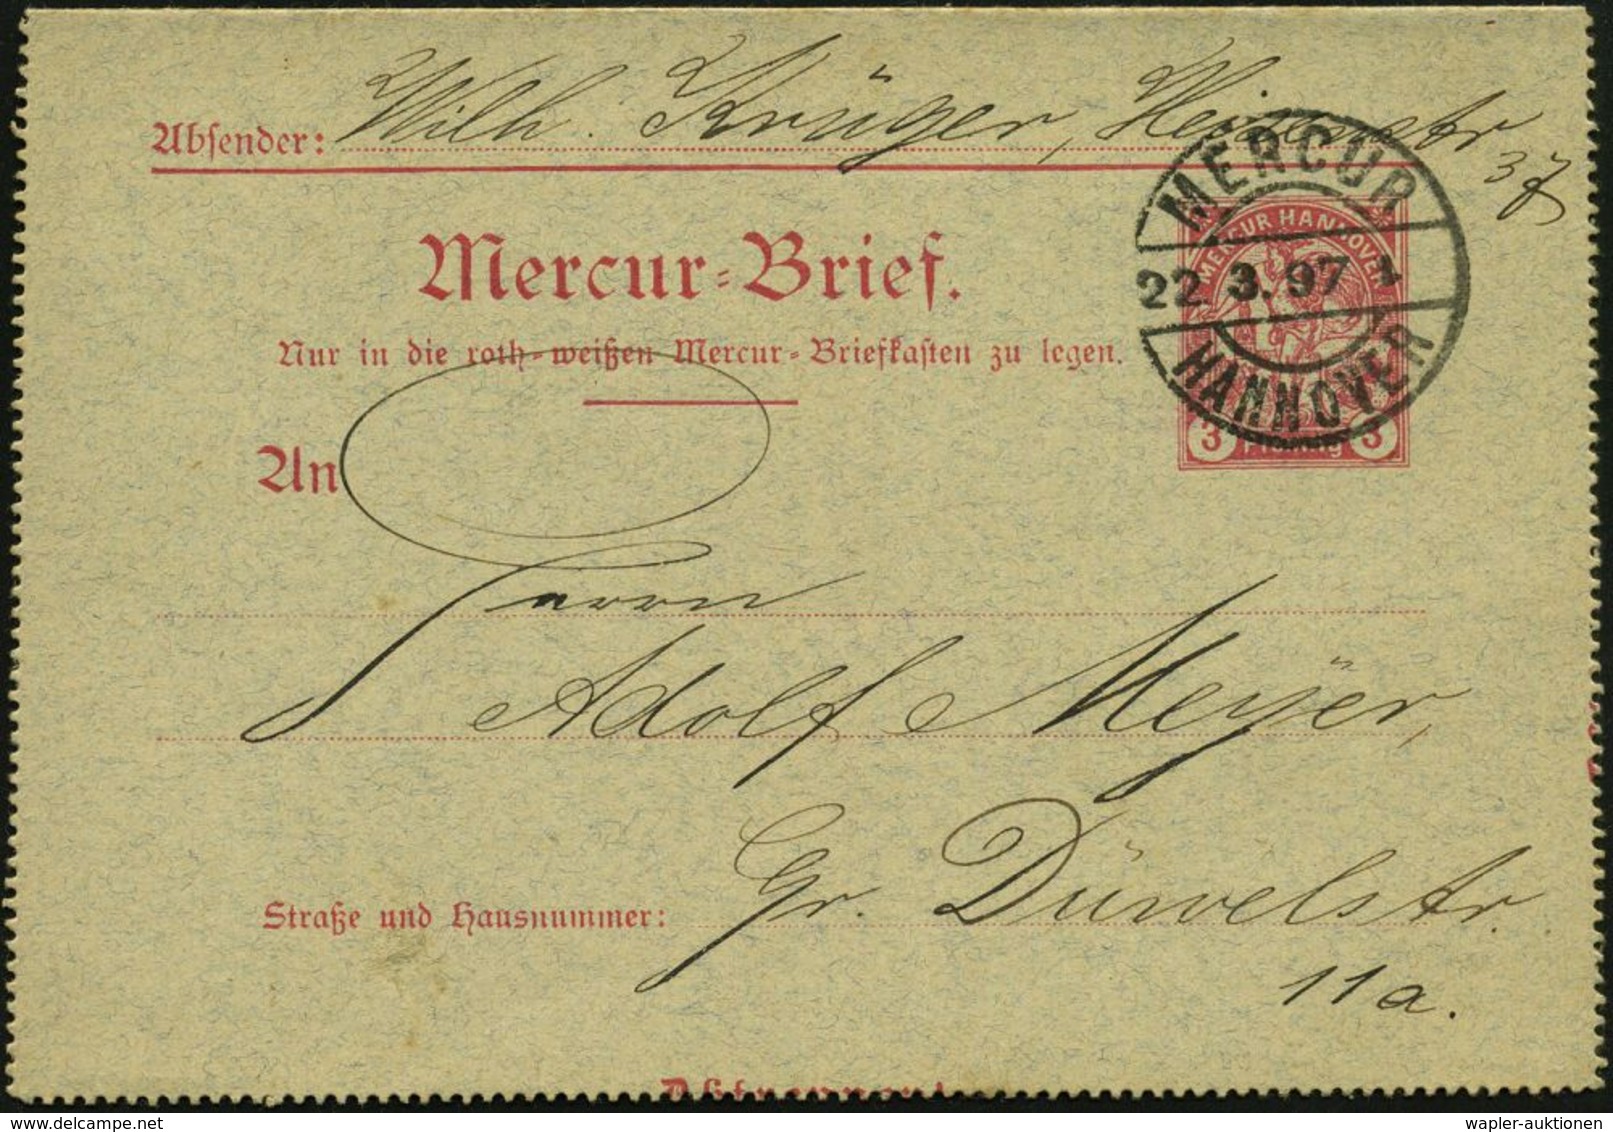 Absender: Wilh. Krüger,
37
MERCUR
22. 3. 97
HANNOVER
MERCUR HANNOVER
3 Pfennig 3
Mercur-Brief.
Nur in die roth-weißen Mercur-Briefkasten zu legen.
An
Herrn
Adolf Meyer,
Straße und Hausnummer: Gr. Düwelstr.
11a.
wapler-auktionen